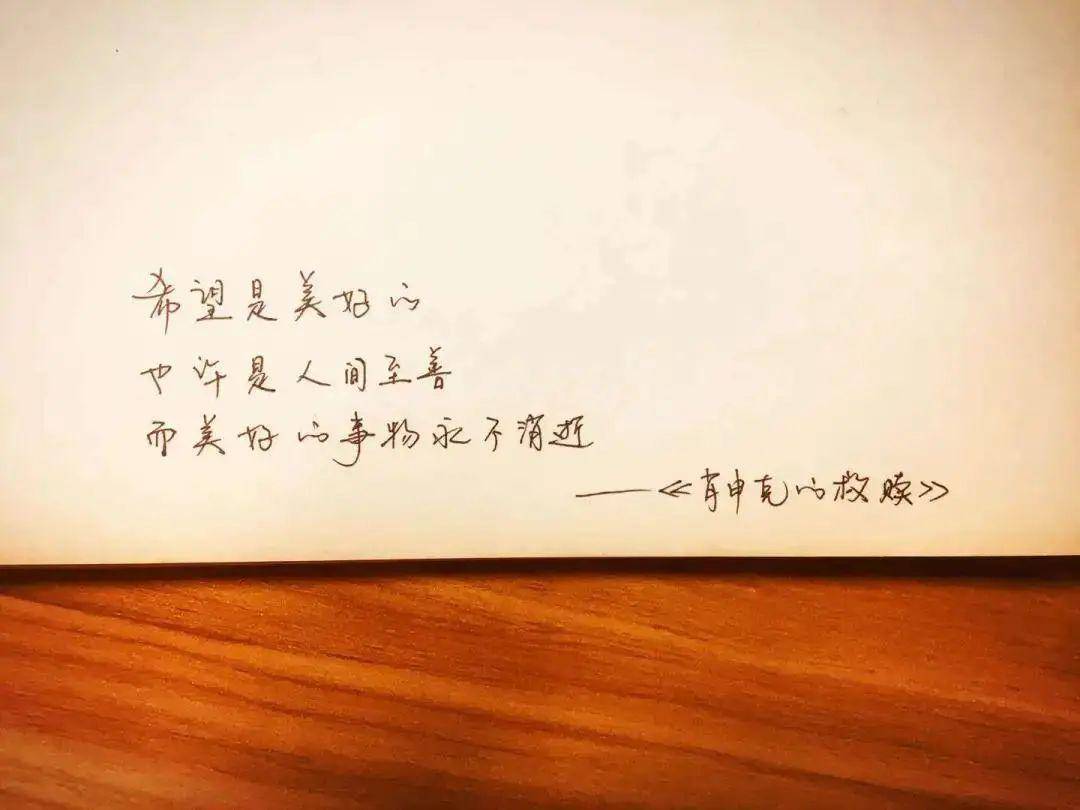 希望是美好的
也许是人间至善
而美好的事物永不消逝
——《肖申克的救赎》